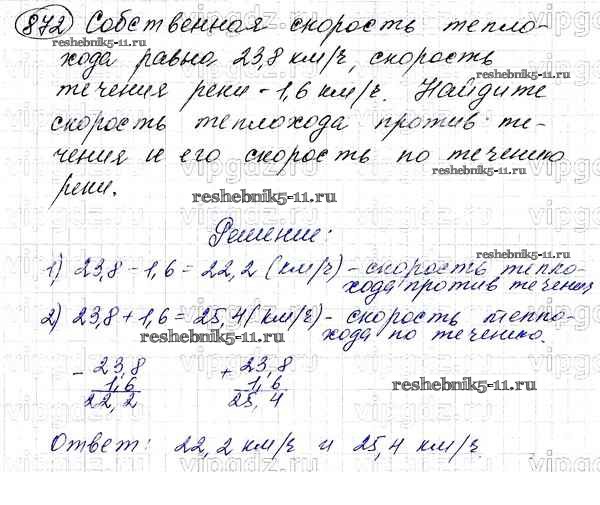 872) Собственная скорость тепло-
хода равна 23,8 км/ч, скорость
течения реки - 1,6 км/ч. Найдите
скорость теплохода против те-
чения и его скорость по течению
реки.
reshebnik5-11.ru
Решение:
1) 23,8 - 1,6 = 22,2 (км/ч) - скорость тепло-
хода против течения,
2) 23,8 + 1,6 = 25,4 (км/ч) - скорость тепло-
хода по течению.
- 23,8 + 23,8
1,6 1,6
22,2 25,4
reshebnik5-11.ru
Ответ: 22,2 км/ч и 25,4 км/ч.